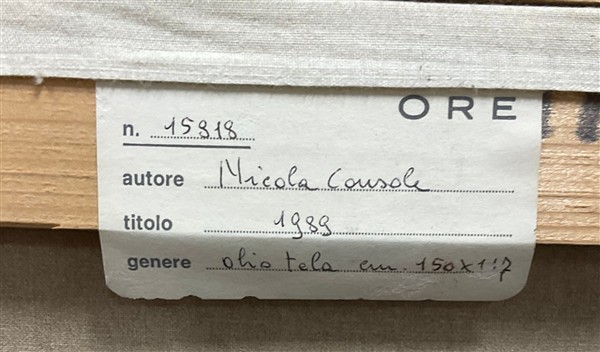 ORE
n. 15918
autore Nicola Console
titolo 1989
genere olio tela cm. 150x117